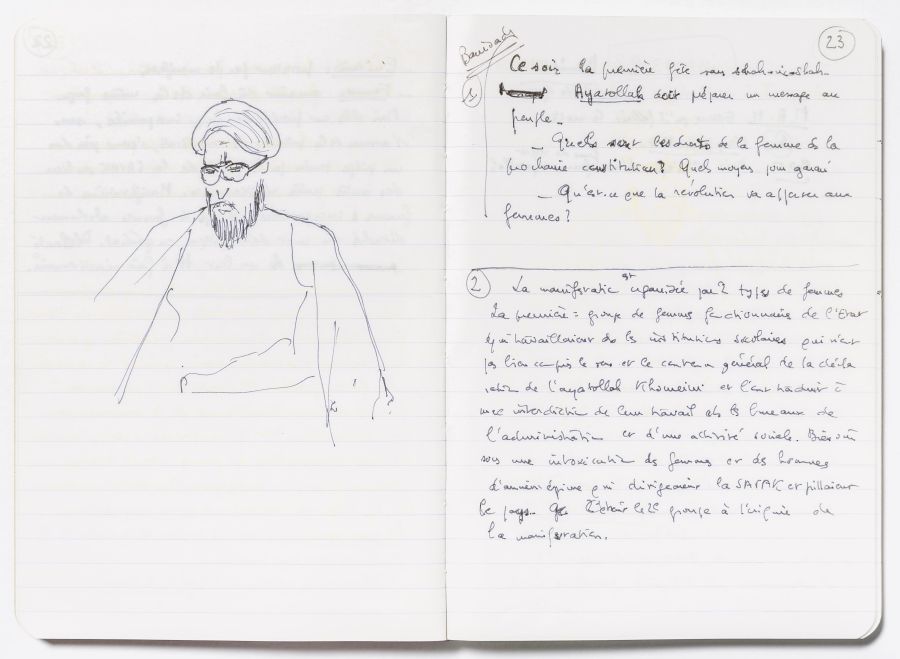 23
Ce soir la première fête sans
Ayatollah doit préparer un message au
peuple.
1
_ Quels sont les droits de la femme de la
prochaine constitution? Quels moyens pour garanti
_ Qu'est-ce que la révolution va apporter aux
femmes?
2 La manifestation est organisée par 2 types de femmes
La première = groupe de femmes fonctionnaires de l'Etat
qui travaillaient ds les institutions scolaires qui n'ont
pas bien compris le sens et le contenu général de la décla
ration de l'ayatollah Khomeini et l'ont traduit à
une interdiction de leur travail ds les bureaux de
l'administration et d'une activité sociale. Bien sûr
sous une intoxication des femmes et des hommes
d'ancien régime qui dirigeaient la SAVAK et pillaient
le pays. C'était le 2e groupe à l'origine de
la manifestation.